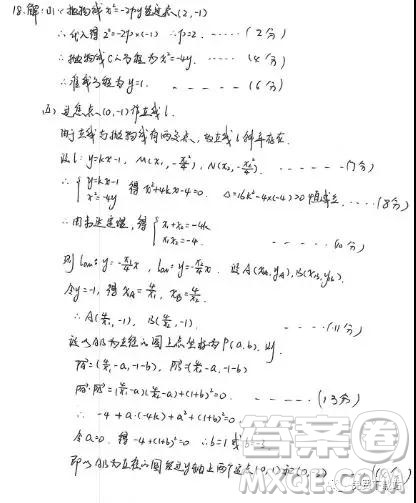 18.解:(1)∵抛物线x²=-2py经过点(2,-1)
∴代入得2²=-2p×(-1) ∴p=2. ······(2分)
∴抛物线C的方程为x²=-4y. ······(4分)
∴准线方程为y=1. ------(6分)
过焦点(0,-1)作直线l.
由于直线与抛物线有两交点,故直线l斜率存在.
设l:y=kx-1, M(x₁,-x₁²/4), N(x₂,-x₂²/4). -----(7分)
∴{y=kx-1 x²=-4y 得x²+4kx-4=0. Δ=16k²-4×(-4)>0恒成立. ····(8分)
∴由韦达定理,得{x₁+x₂=-4k x₁x₂=-4. ----(10分)
则lOM:y=-x₁/4x, lON:y=-x₂/4x. 设A(xA,yA),B(xB,yB).
令y=-1,得xA=4/x₁, xB=4/x₂.
∴A(4/x₁,-1), B(4/x₂,-1). ----(11分)
设以AB为直径的圆上点坐标为P(a,b),则
PA=(4/x₁-a,-1-b), PB=(4/x₂-a,-1-b)
PA·PB=(4/x₁-a)(4/x₂-a)+(1+b)²=0. ----(13分)
∴ -4+a·(-4k)+a²+(1+b)²=0.
令a=0,得-4+(1+b)²=0 ∴b=1或
即以AB为直径的圆经过y轴上两个定点(0,1)和
答案圈